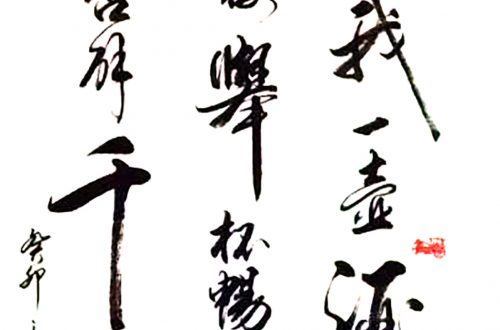 我一壺酒
舉杯暢
解千
癸卯